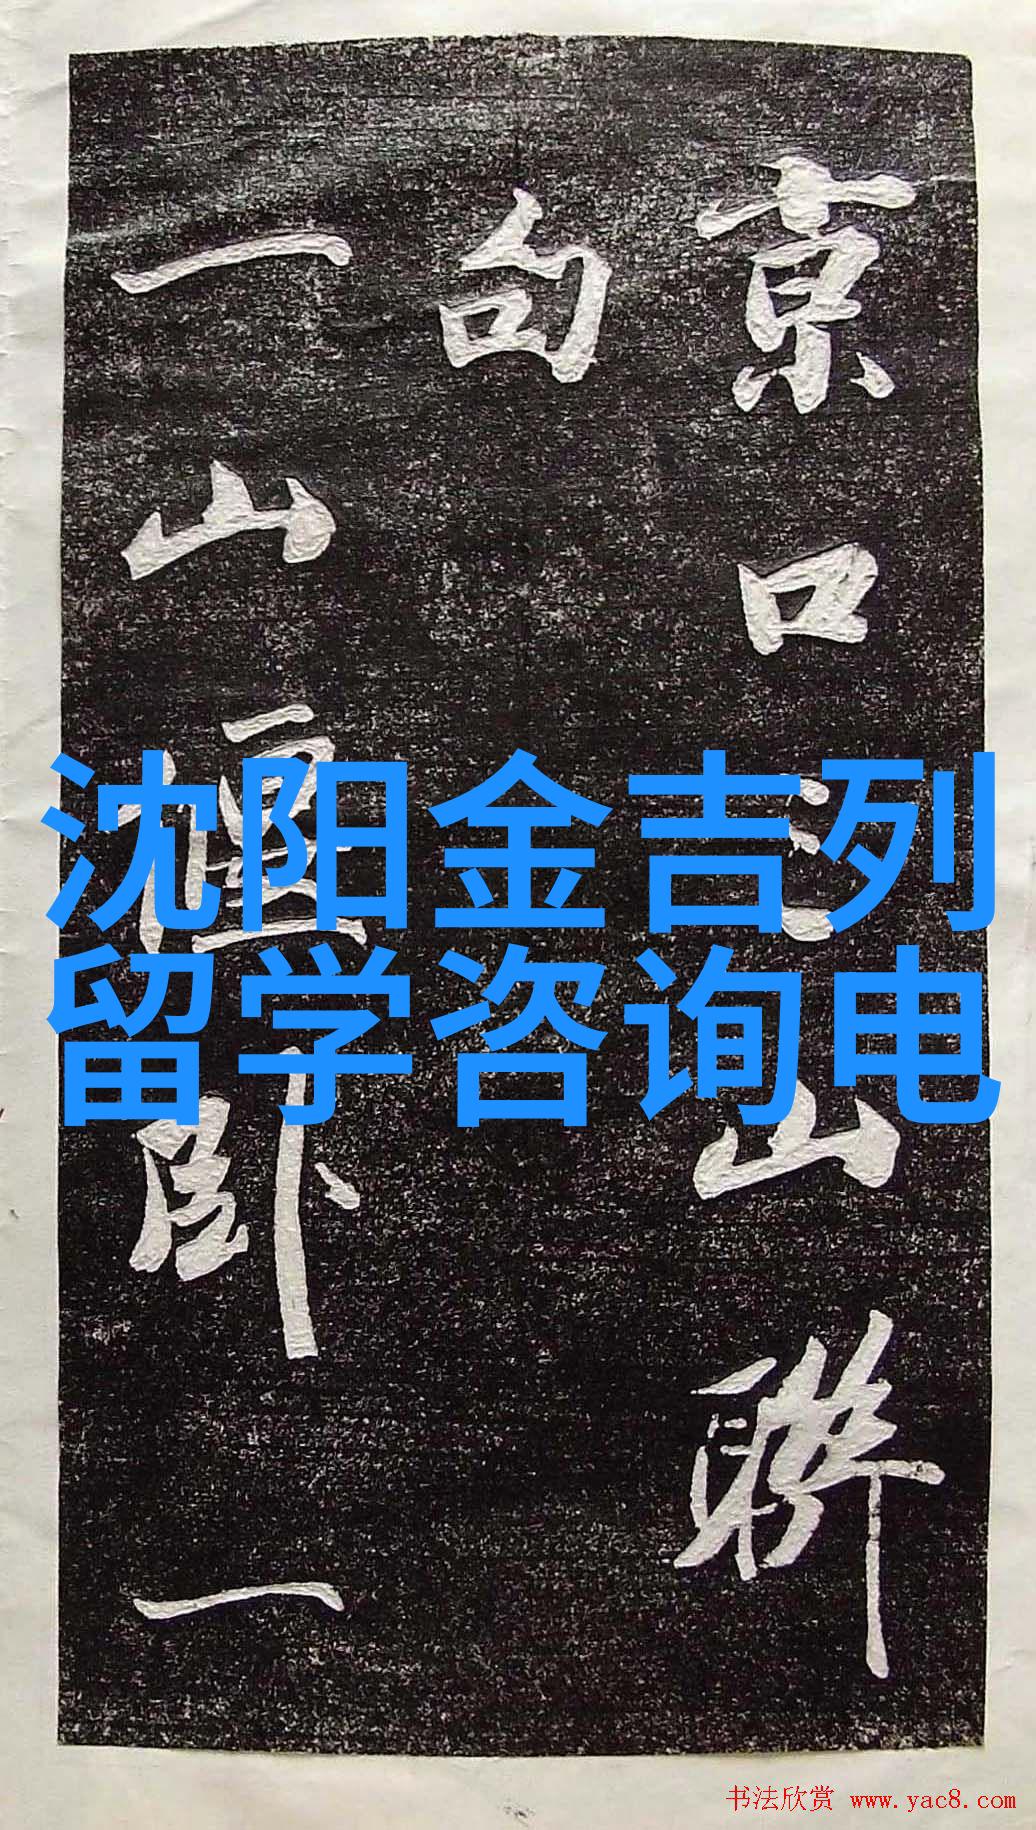 京口三山聯
句
一山恒卧一
沈阳金吉列
留学咨询电
书法欣赏 www.yac8.com